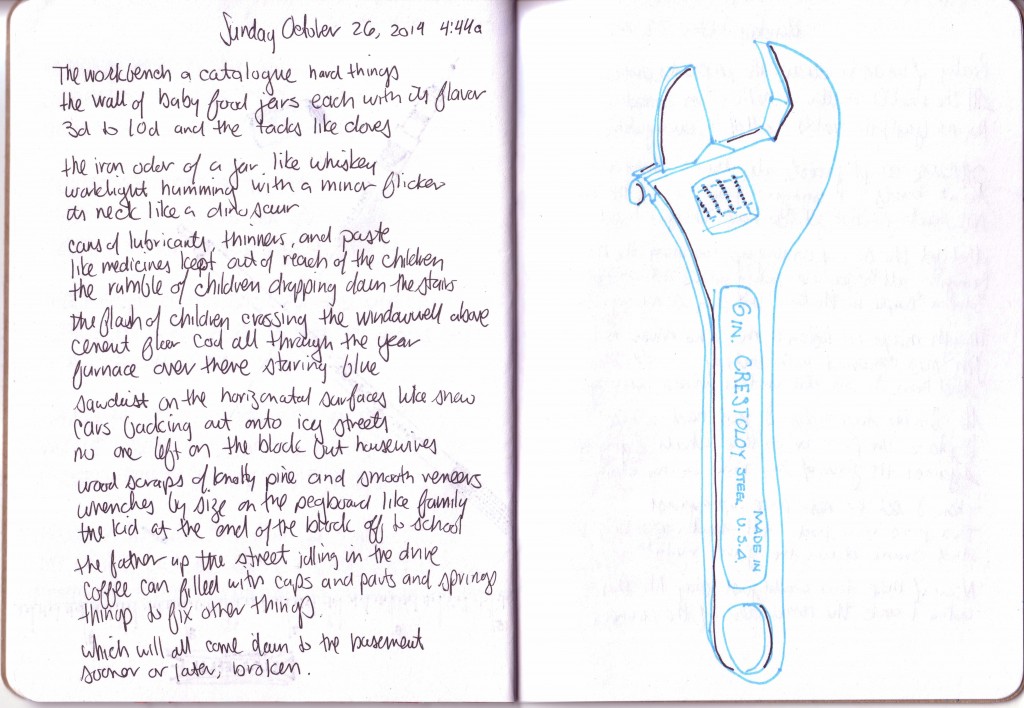 Sunday October 26, 2014 4:44a
The workbench a catalogue hard things
the wall of baby food jars each with its flavor
3d to 10d and the tacks like cloves
the iron odor of a jar like whiskey
worklight humming with a minor flicker
its neck like a dinosaur
cans of lubricants, thinners, and paste
like medicines kept out of reach of the children
the rumble of children dropping down the stairs
the flash of children crossing the windowwell above
cement floor cool all through the year
furnace over there staring blue
sawdust on the horizonatal surfaces like snow
cars backing out onto icy streets
no one left on the block but housewives
wood scraps of knotty pine and smooth veneers
wrenches by size on the pegboard like family
the kid at the end of the block off to school
the father up the street idling in the drive
coffee can filled with caps and parts and springs
things to fix other things.
which will all come down to the basement
sooner or later, broken.
6 IN. CRESTOLOY STEEL MADE IN U.S.A.